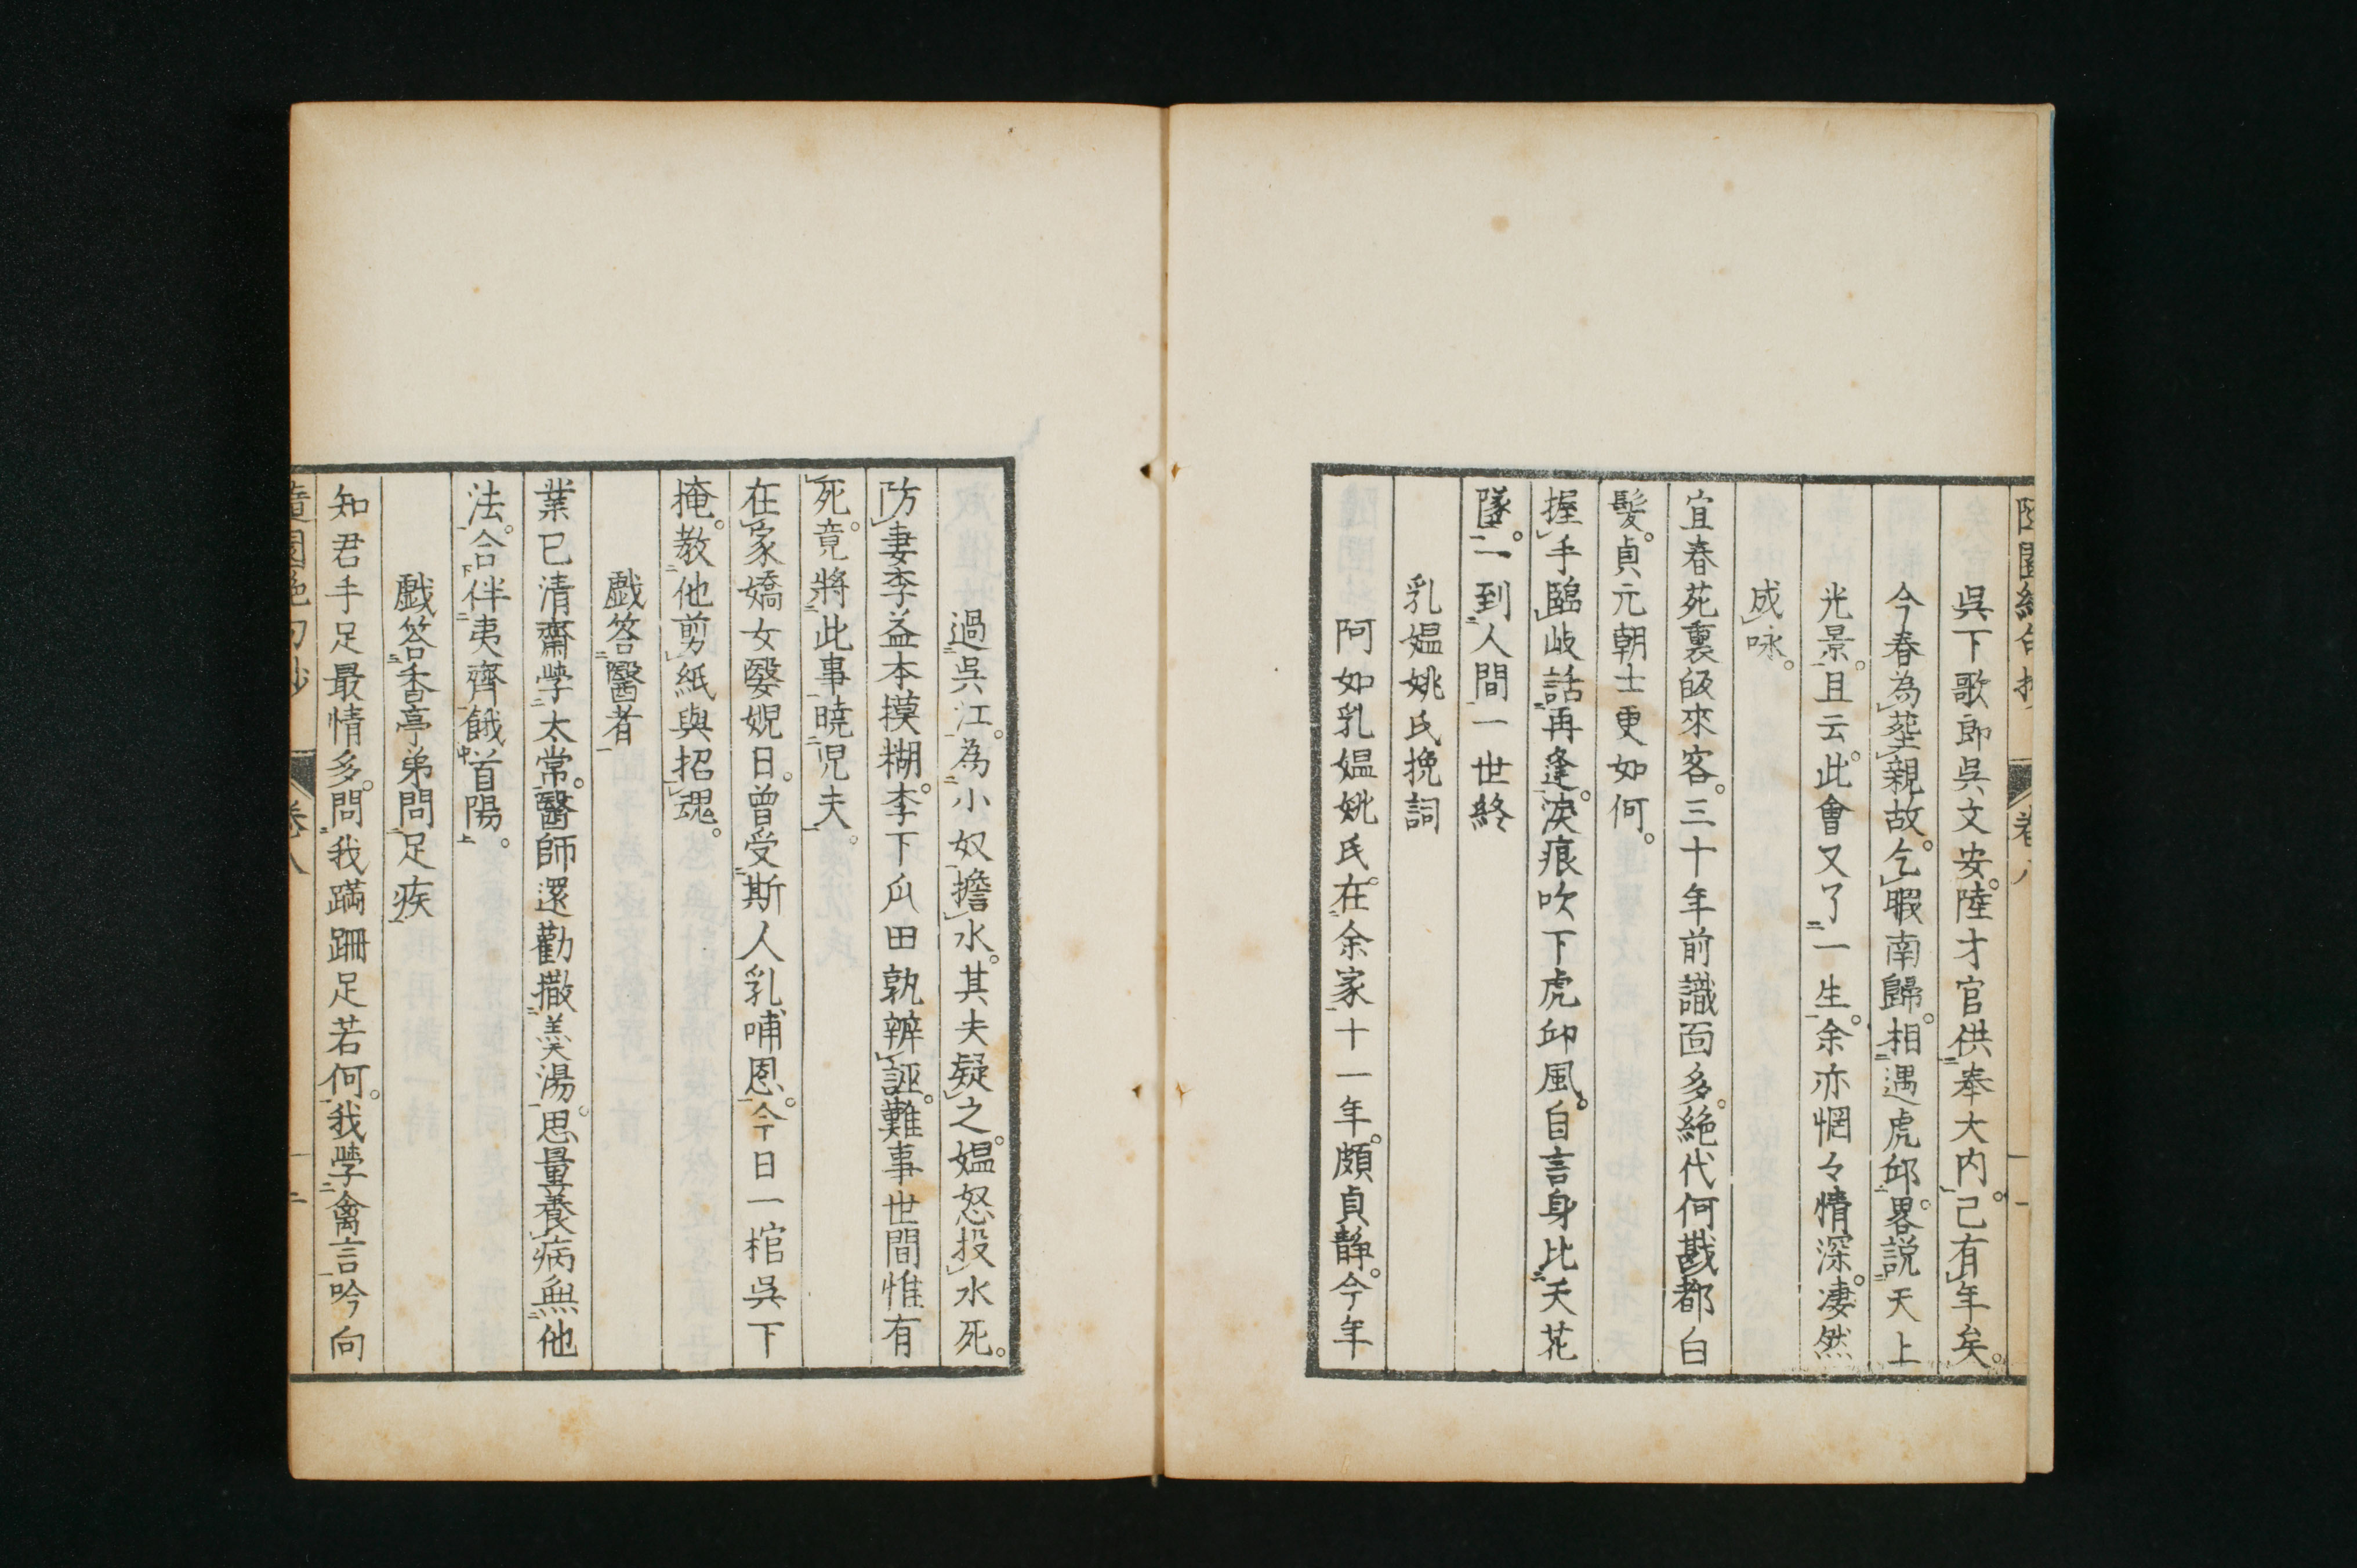 吳下歌郎吳文安。陸才官供奉大内。己有年矣。
今春為塟親故。乞暇南歸。相遇虎邱。畧説天上
光景。且云。此會又了一生。余亦惘々情深。凄然
成咏。
宜春苑裏皈來客。三十年前識面多。絶代何戡都白
髮。貞元朝士更如何。
握手臨歧話再逢。淚痕吹下虎邱風。自言身比天花
墜。一到人間一世終
乳媪姚氏挽詞
阿如乳媪姚氏。在余家十一年。頗貞静。今年
過吳江。為小奴擔水。其夫疑之。媪怒投水死。
防妻李益本摸糊。李下瓜田孰辨誣。難事世間惟有
死。竟將此事曉児夫。
在家嬌女嫛婗日。曾受斯人乳哺恩。今日一棺吳下
掩。教他剪紙與招魂。
戲答醫者
業已清齋學太常。醫師還勸撤羹湯。思量養病無他
法。合伴夷齊餓首陽。
戲答香亭弟問足疾
知君手足最情多。問我蹣跚足若何。我學禽言吟向
隨園絶句抄 卷八